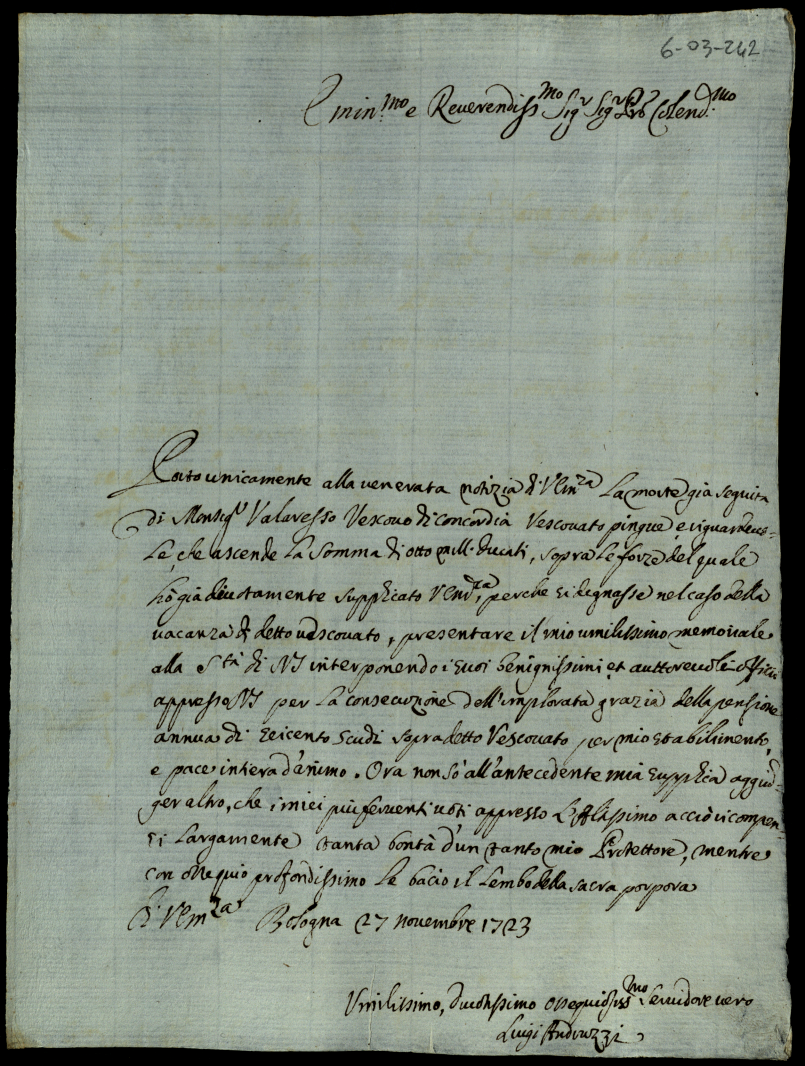 6-03-242
Emin.mo e Reverendiss.mo Sigr Sigr Pro Colend.mo
Porto unicamente alla venerata notizia di V Em.za La morte già seguita
di Monsigr Valaresso Vescovo di Concordia Vescovato pingue, e riguardevo-
le, che ascende La Somma di otto mill. ducati, sopra le forze del quale
hò già divotamente supplicato V Em.za, perche si degnasse nel caso della
vacanza di detto vescovato, presentare il mio umilissimo memoriale
alla S.tà di NS interponendo i suoi benignissimi et auttorevoli officii
appresso NS per La consecuzione dell'implorata grazia della pensione
annua di seicento scudi sopra detto Vescovato per mio stabilimento,
e pace intiera d'animo. Ora non sò all'antecedente mia supplica aggiu-
ger altro, che i miei più ferventi voti appresso L'Altissimo acciò ricompen-
si Largamente tanta bontà d'un tanto mio Protettore, mentre
con ossequio profondissimo Le bacio il Lembo della sacra porpora
Di V Em.za Bologna 27 Novembre 1723
Umilissimo, Divotissimo ossequiosiss.mo Servidore vero
Luigi Andruzzi